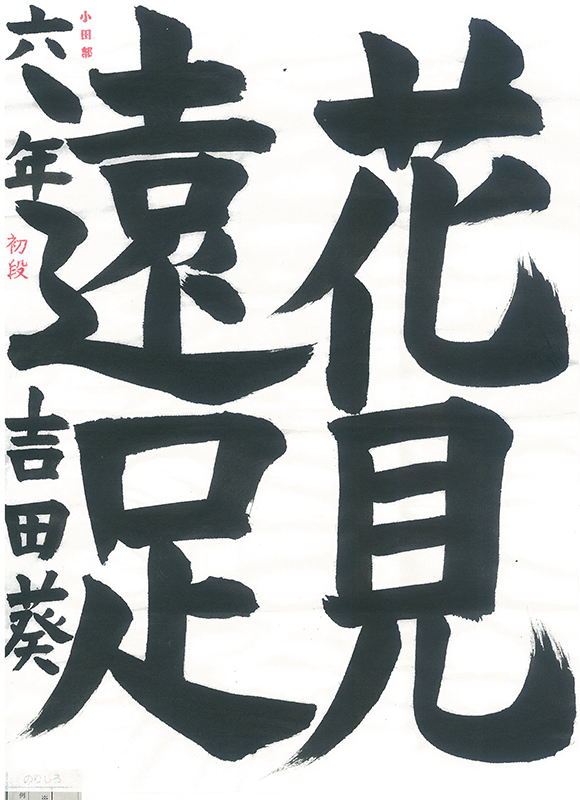 花見
遠足
六年 吉田葵
小田部
初段
のりしろ
例
※